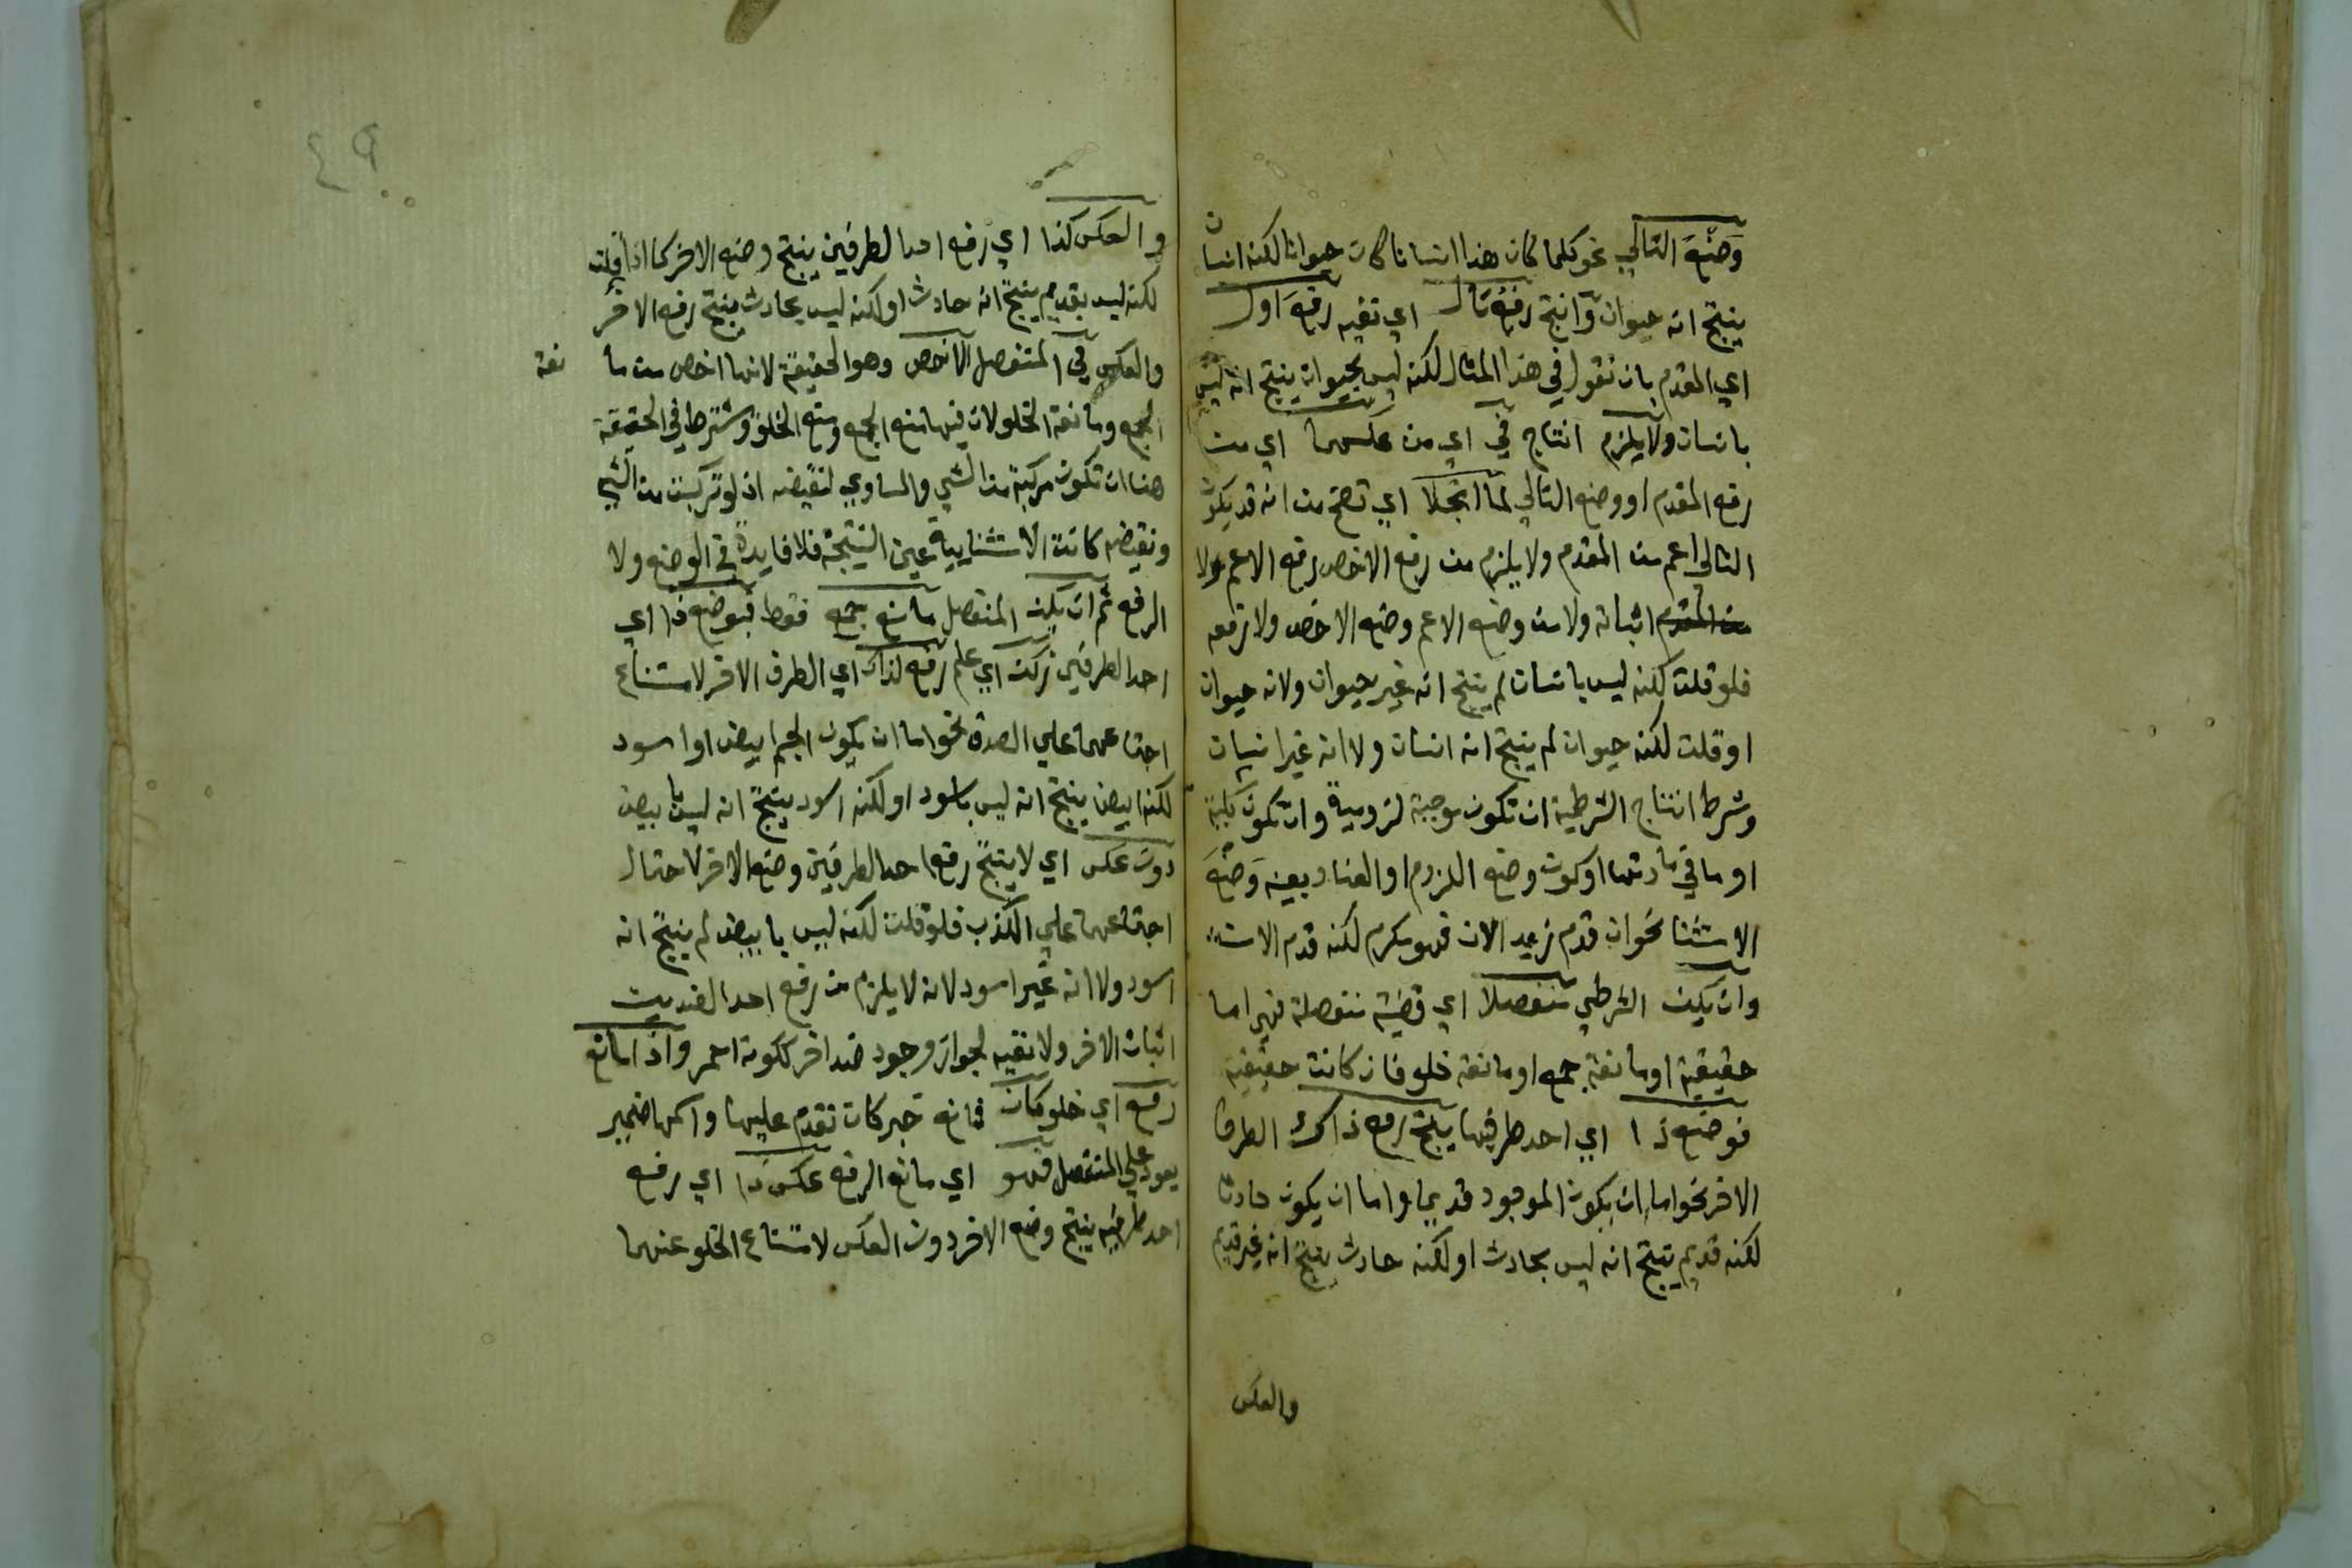 وَضْعَ التالي نحو كلما كان هذا انسانا كان حيوانا لكنه انسان
ينتج انه حيوان وانتج رفعُ تال اي نفيه رفعَ اول
اي المقدم بان نقول في هذا المثال لكنه ليس بحيوان ينتج انه ليس
بانسان ولا يلزم انتاج في اي من عكسهما اي من
رفع المقدم او وضع التالي لما انجلا اي تضح من انه قد يكون
التالي اعم من المقدم ولا يلزم من رفع الاخص رفع الاعم ولا
من المقدم اثباته ولا من وضع الاعم وضع الاخص ولا رفعه
فلو قلت لكنه ليس بانسان لم ينتج انه غير حيوان ولا انه حيوان
او قلت لكنه حيوان لم ينتج انه انسان ولا انه غير انسان
وشرط انتاج الشرطية ان تكون موجبة لزومية وان تكون كلية
او ما في مادتها او كون وضع اللزوم او العناد بعينه وَضْعَ
الاستثنا نحو ان قدم زيد الان فهو مكرم لكنه قدم الان
وان يكن الشرطي منفصلا اي قضية منفصلة فهي اما
حقيقية او مانعة جمع او مانعة خلو فان كانت حقيقية
فوضع ذا اي احد طرفيها ينتج رفع ذاك الطرف
الاخر نحو اما ان يكون الموجود قديما واما ان يكون حادثا
لكنه قديم ينتج انه ليس بحادث او لكنه حادث ينتج انه غير قديم
والعكس
٤٩
والعكس كذا اي رفع احد الطرفين ينتج وضع الاخر كما اذا قلت
لكنه ليس بقديم ينتج انه حادث او لكنه ليس بحادث ينتج رفع الاخر
والعكس في المنفصل الاخص وهو الحقيقة لانها اخص من ما نعة
الجمع ومانعة الخلو لان فيها منع الجمع ومنع الخلو وشترط في الحقيقة
هنا ان تكون مركبة من الشي والمساوي لنقيضه اذ لو تركبت من الشي
ونقيضه كانت الاستثنايية عين النتيجة فلا فايدة في الوضع ولا
الرفع ثم ان يكن المنفصل مانع جمع فقط فبوضع ذا اي
احد الطرفين زكن اي علم رفع لذاك اي الطرف الاخر لامتناع
اجتماعهما علي الصدق نحو اما ان يكون الجسم ابيض او اسود
لكنه ابيض ينتج انه ليس باسود او لكنه اسود ينتج انه ليس بابيض
دون عكس اي لا ينتج رفع احد الطرفين وضع الاخر لاحتمال
اجتماعهما علي الكذب فلو قلت لكنه ليس بابيض لم ينتج انه
اسود ولا انه غير اسود لانه لا يلزم من رفع احد الضدين
اثبات الاخر ولا نفيه لجواز وجود ضد اخر ككونه احمر واذا مانع
رفع اي خلو كان فمانع خبر كان تقدم عليها واسمها ضمير
يعود علي المنفصل فهو اي مانع الرفع عكس ذا اي رفع
احد طرفيه ينتج وضع الاخر دون العكس لامتناع الخلو عنهما